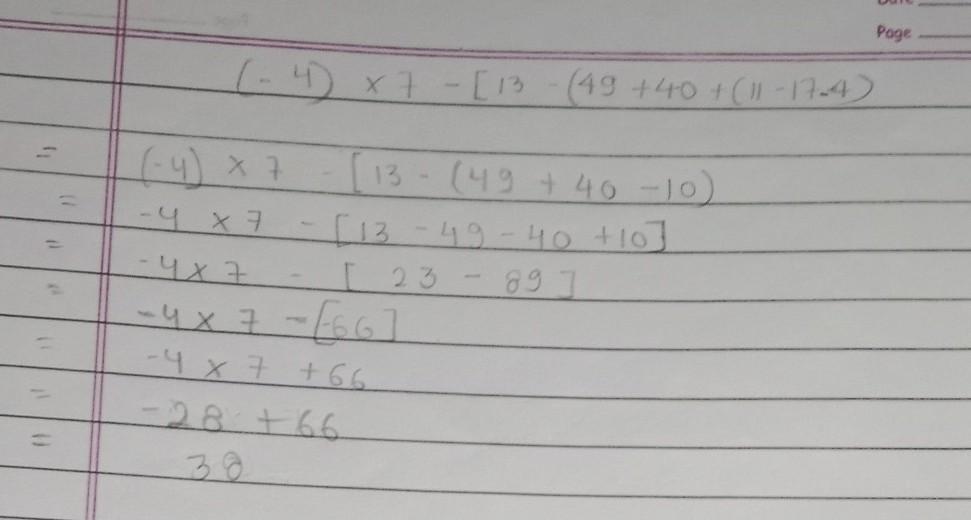 Page
(-4) × 7 - [13 - (49 + 40 + (11 - 17 - 4)
= (-4) × 7 - [13 - (49 + 40 - 10)
= -4 × 7 - [13 - 49 - 40 + 10]
= -4 × 7 - [23 - 89]
= -4 × 7 - [-66]
= -4 × 7 + 66
= -28 + 66
= 38